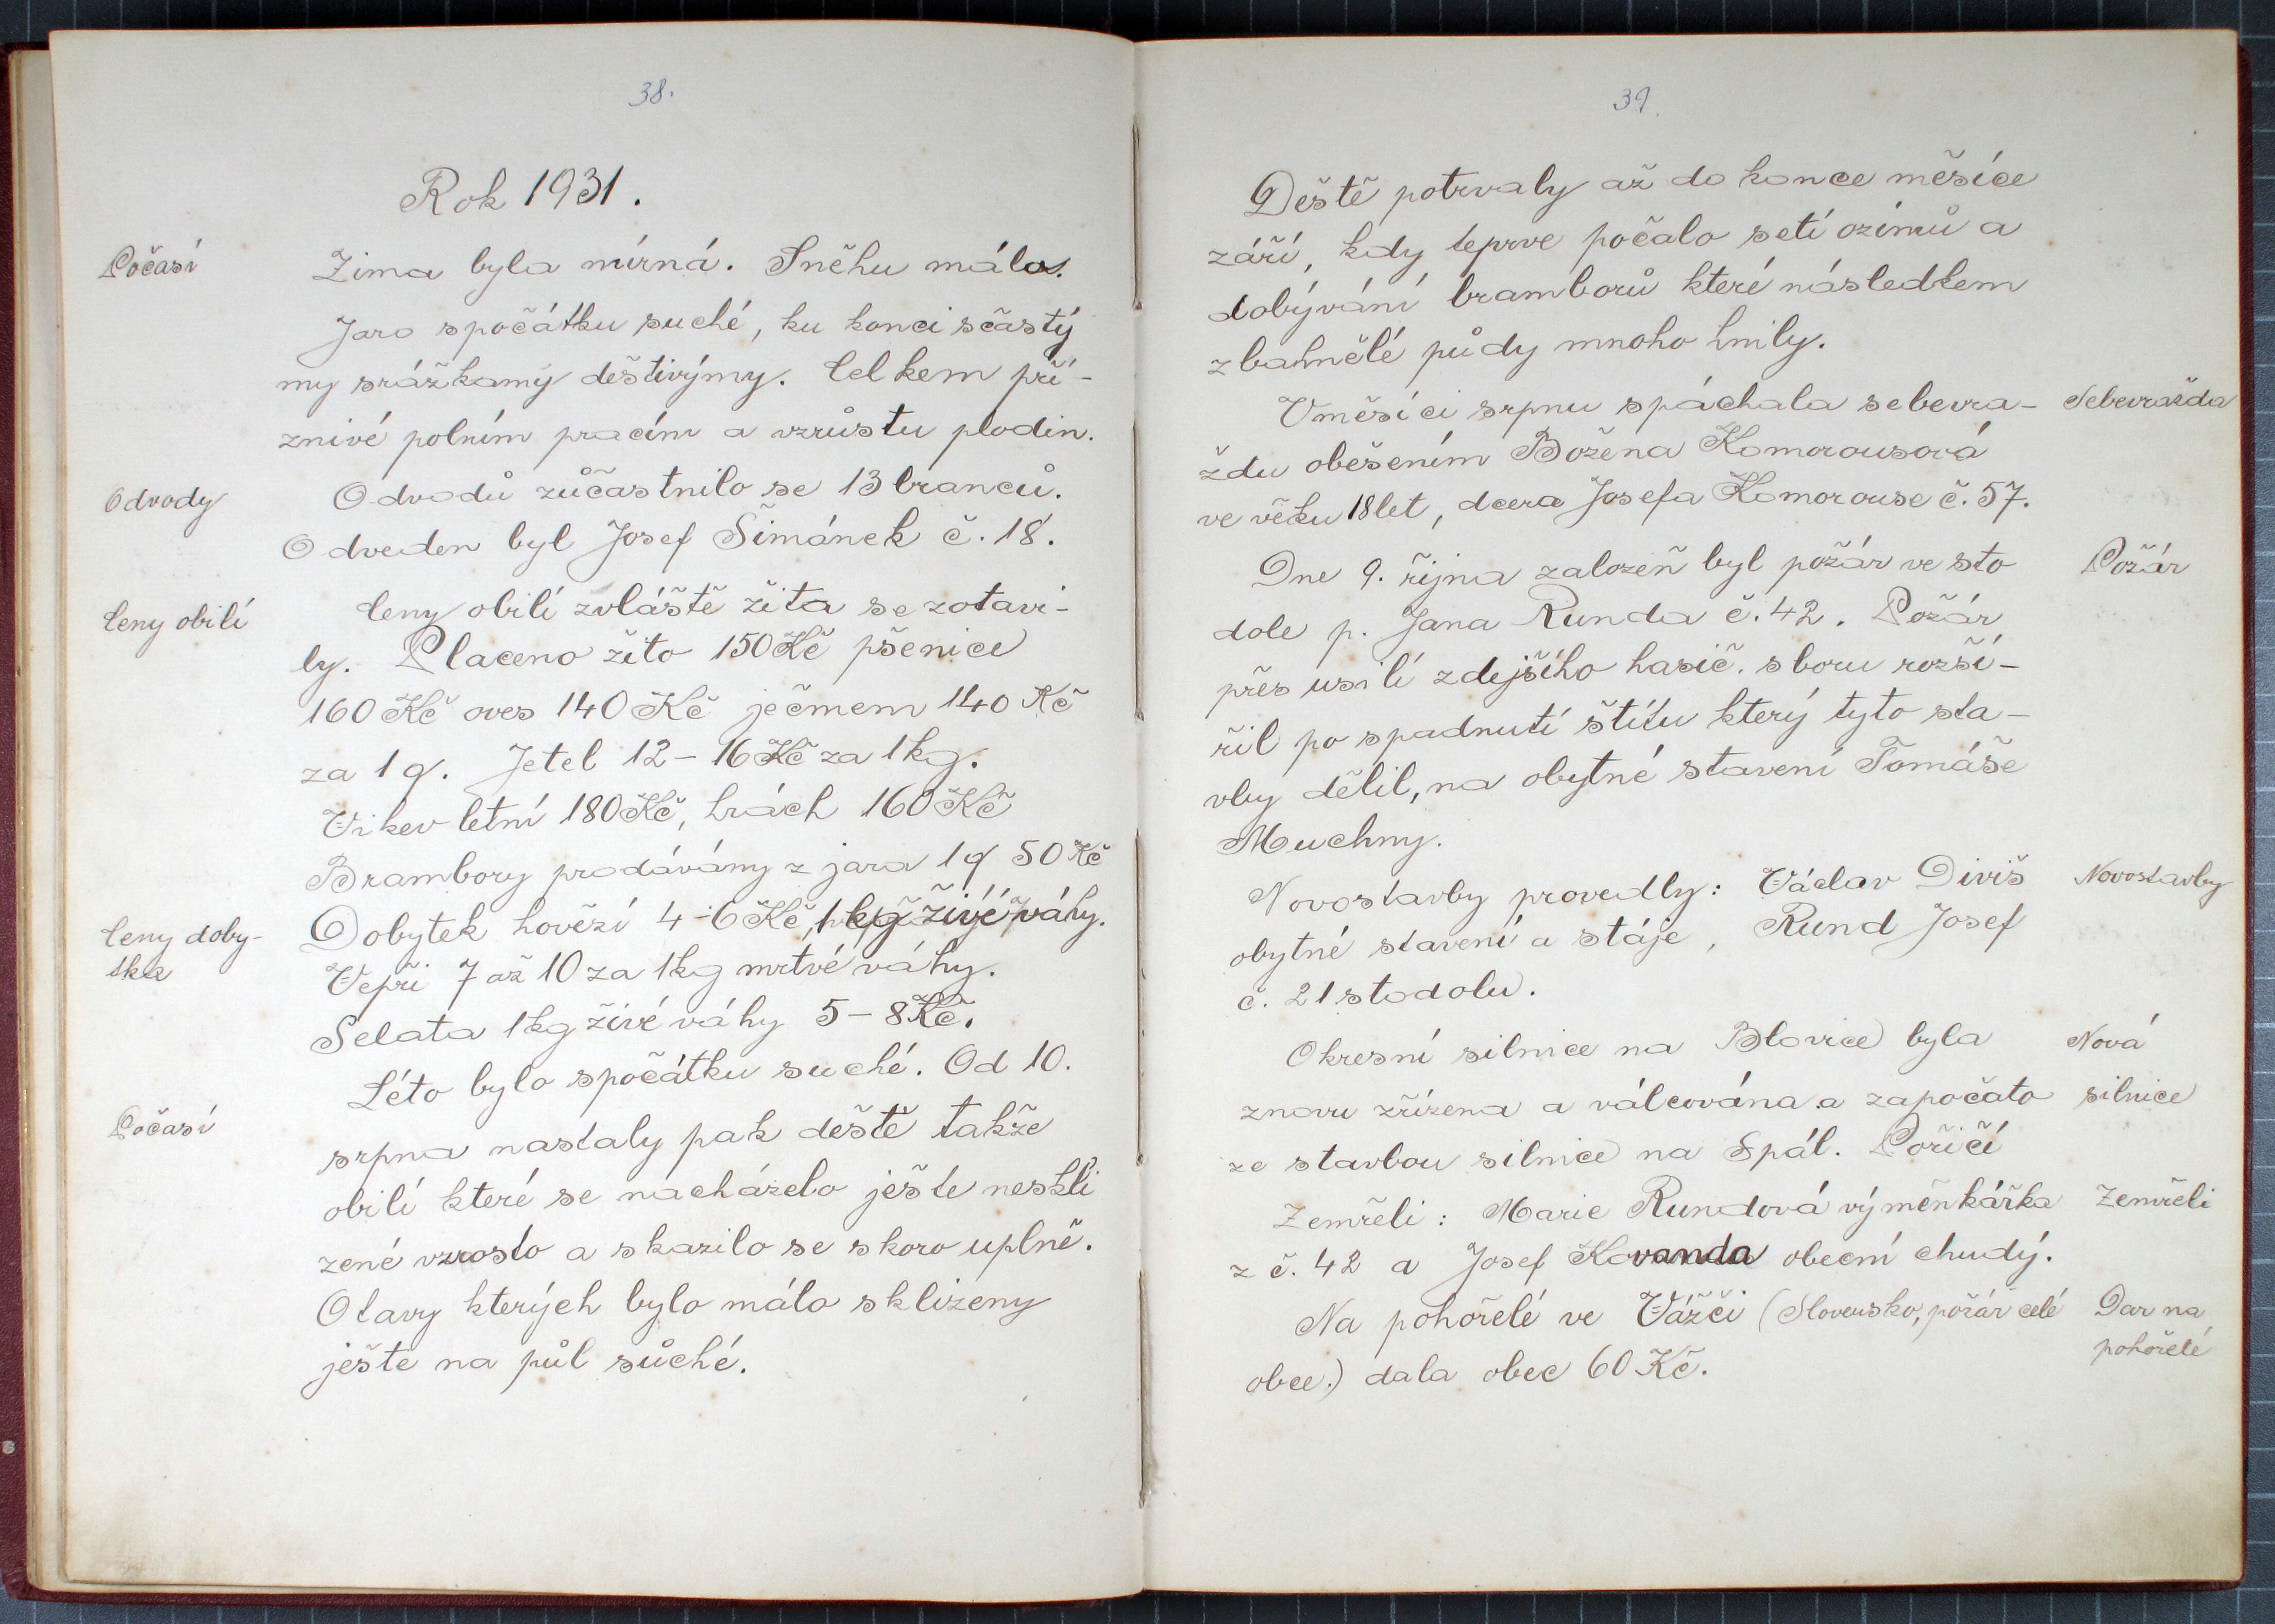 38.
Rok 1931.
Počasí
Zima byla mírná. Sněhu málo.
Jaro spočátku suché, ku konci sčastý
my srážkamy deštivýmy. Celkem pří-
znivé polním pracím a vzrůstu plodin.
Odvody
Odvodů zůčastnilo se 13 branců.
Odveden byl Josef Šimánek č. 18.
Ceny obilí
Ceny obilí zvláště žita se zotavi-
ly. Placeno žito 150 Kč pšenice
160 Kč oves 140 Kč ječmem 140 Kč
za 1 q. Jetel 12 – 16 Kč za 1 kg.
Vikev letní 180 Kč, hrách 160 Kč
Brambory prodávány z jara 1 q 50 Kč
Ceny doby-
tka
Dobytek hovězí 4 - 6 Kč, 1 kg živé váhy.
Vepři 7 až 10 za 1 kg mrtvé váhy.
Selata 1 kg živé váhy 5 – 8 Kč.
Léto bylo spočátku suché. Od 10.
Počasí
srpna nastaly pak deště takže
obilí které se nacházelo ješte neskli
zené vzrostlo a skazilo se skoro uplně.
Otavy kterých bylo málo sklizeny
ješte na půl sůché.
39.
Deště potrvaly až do konce měsíce
září, kdy teprve počalo setí ozimů a
dobývání bramborů které následkem
zbahnělé půdy mnoho hnily.
Vměsíci srpnu spáchala sebevra-
Sebevražda
ždu oběšením Božena Komorousová
ve věku 18 let, dcera Josefa Komorouse č. 57.
Dne 9. řijna založeň byl požár ve sto
Požár
dole p. Jana Runda č. 42. Požár
přes usilí zdejšího hasič. sboru rozší-
řil po spadnutí štítu který tyto sta-
vby dělil, na obytné stavení Tomáše
Muchny.
Novostavby provedly: Václav Diviš
Novostavby
obytné stavení a stáje, Rund Josef
č. 21 stodolu.
Okresní silnice na Blovice byla
Nová
znovu zřízena a válcována a započato
silnice
ze stavbou silnice na Spál. Pořičí
Zemřeli: Marie Rundová výměnkářka
Zemřeli
z č. 42 a Josef Kovanda obecní chudý.
Na pohořelé ve Vážci (Slovensko, požár celé
Dar na
pohořelé
obce.) dala obec 60 Kč.